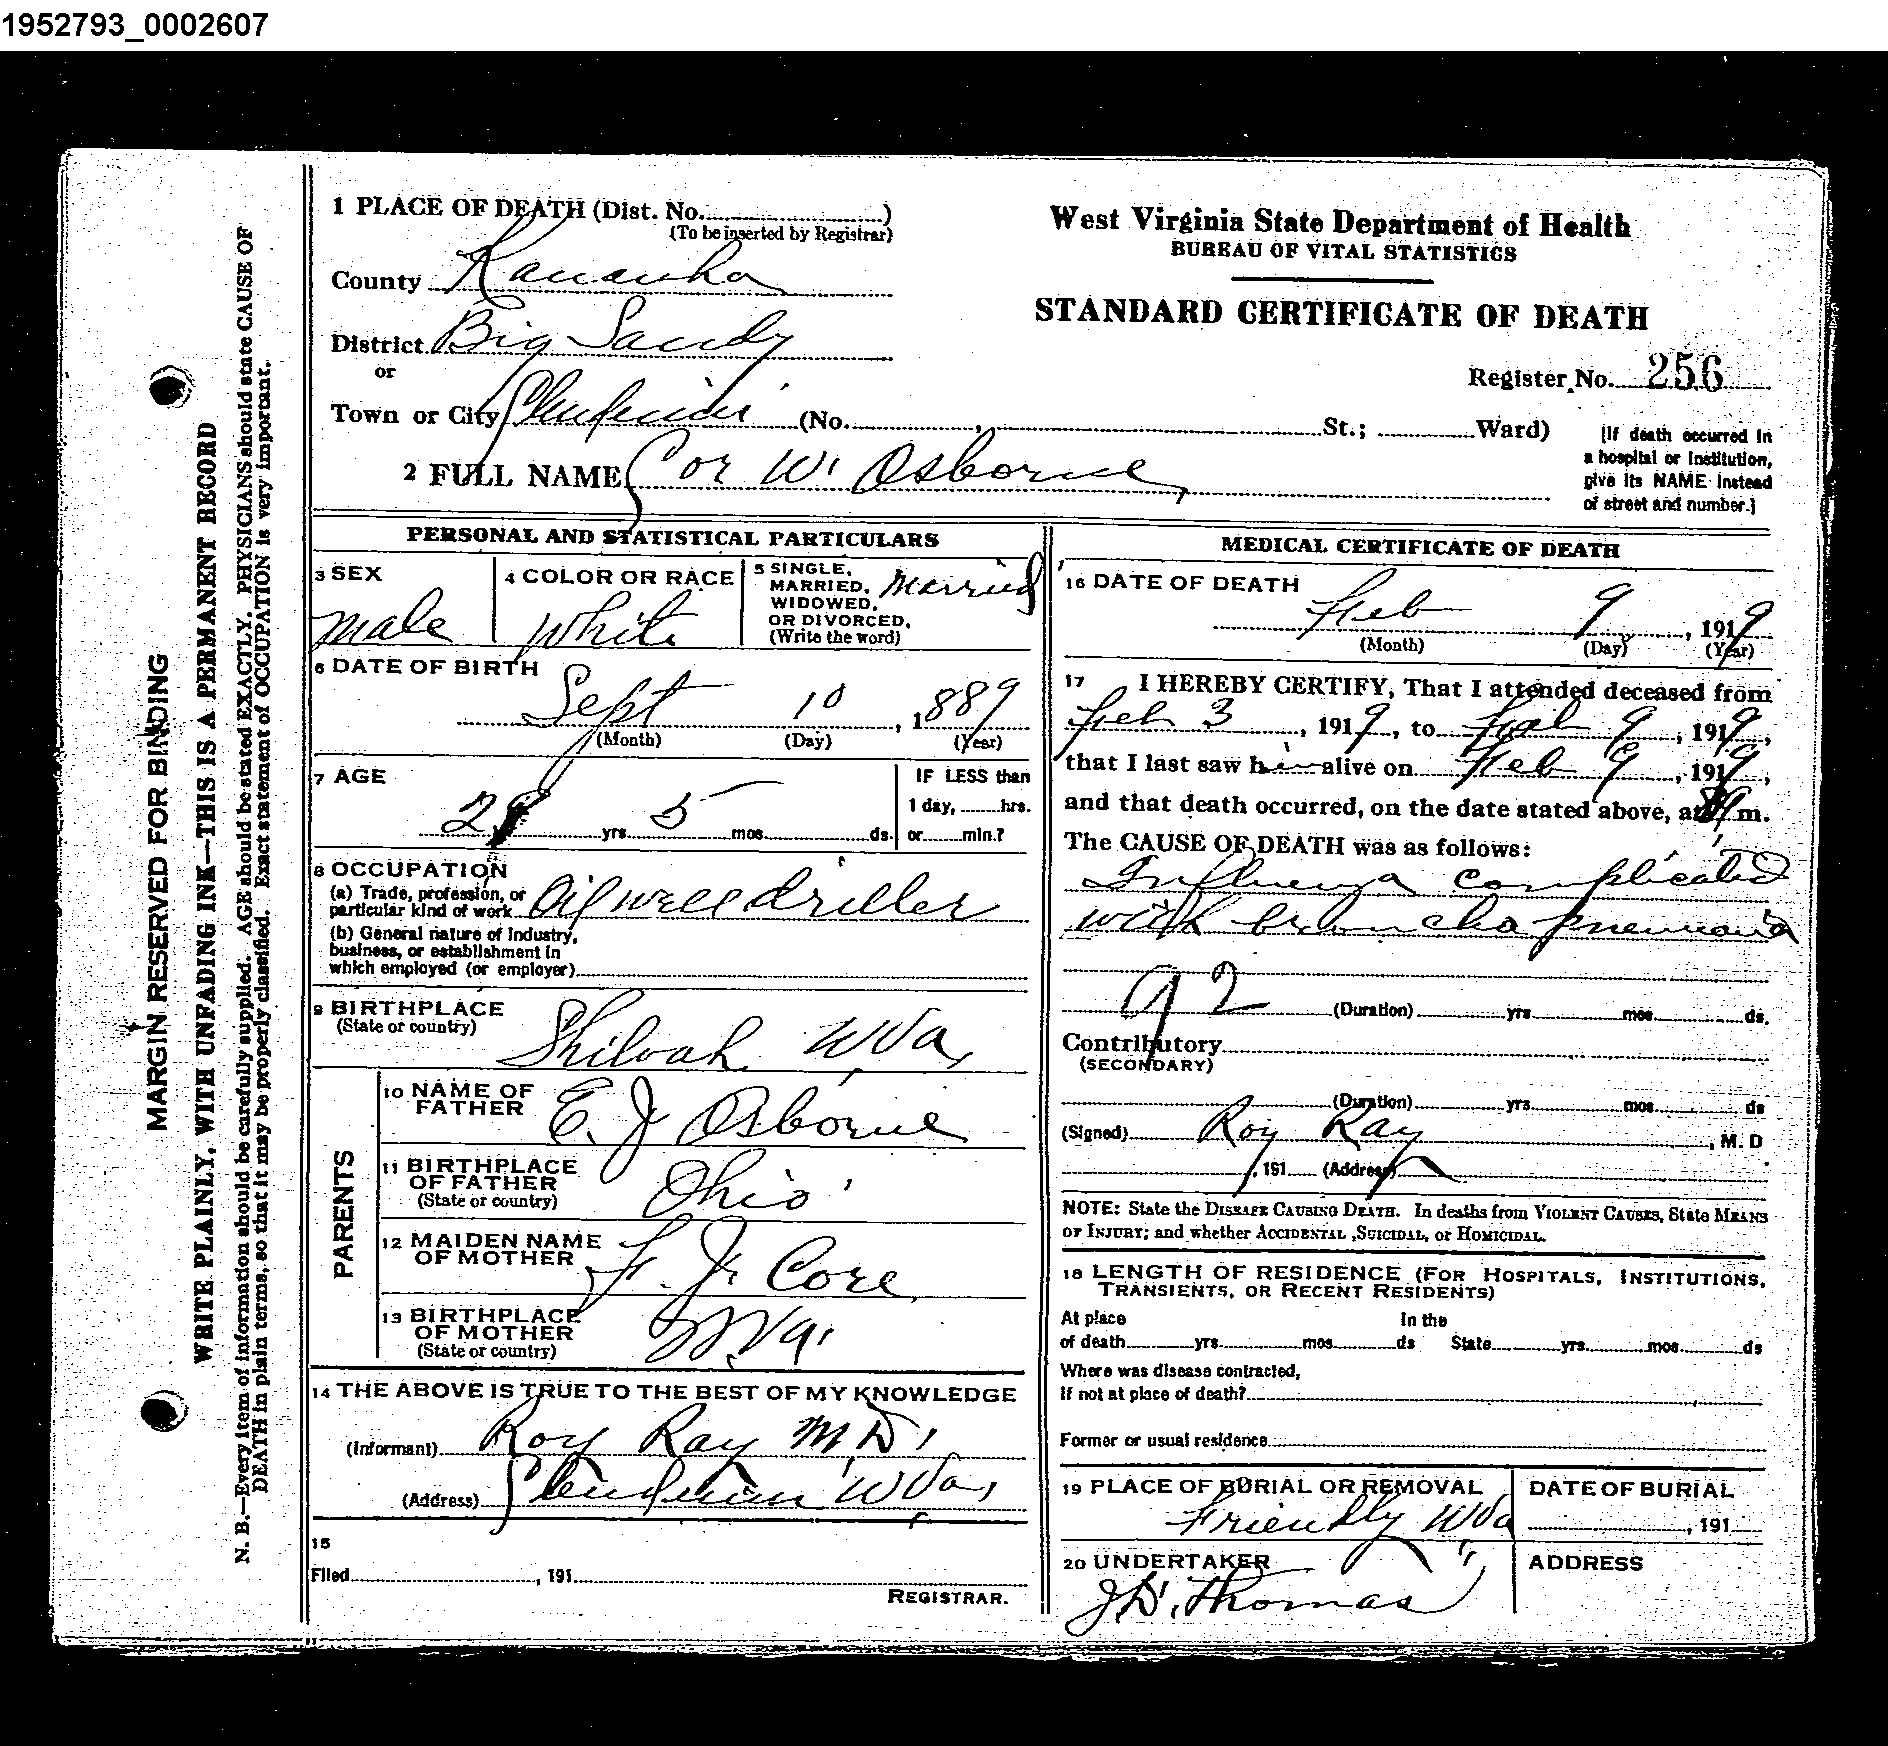 1952793_0002607
MARGIN RESERVED FOR BINDING
WRITE PLAINLY, WITH UNFADING INK—THIS IS A PERMANENT RECORD
N. B.—Every item of information should be carefully supplied. AGE should be stated EXACTLY. PHYSICIANS should state CAUSE OF
DEATH in plain terms, so that it may be properly classified. Exact statement of OCCUPATION is very important.
1 PLACE OF DEATH (Dist. No. )
(To be inserted by Registrar)
County Kanawha
District Big Sandy
or
Town or City Clendenin (No. , St.; Ward)
2 FULL NAME Cor W. Osborne
West Virginia State Department of Health
BUREAU OF VITAL STATISTICS
STANDARD CERTIFICATE OF DEATH
Register No. 256
[If death occurred in
a hospital or institution,
give its NAME instead
of street and number.]
PERSONAL AND STATISTICAL PARTICULARS
3 SEX
male
4 COLOR OR RACE
White
5 SINGLE,
MARRIED,
WIDOWED,
OR DIVORCED,
(Write the word)
Married
6 DATE OF BIRTH
Sept 10, 1889
(Month) (Day) (Year)
7 AGE
29 yrs. 5 mos. ds.
IF LESS than
1 day, hrs.
or min.?
8 OCCUPATION
(a) Trade, profession, or
particular kind of work Oil well driller
(b) General nature of industry,
business, or establishment in
which employed (or employer)
9 BIRTHPLACE
(State or country)
Shiloah W Va,
PARENTS
10 NAME OF
FATHER
E. J Osborne
11 BIRTHPLACE
OF FATHER
(State or country)
Ohio
12 MAIDEN NAME
OF MOTHER
F. J. Core
13 BIRTHPLACE
OF MOTHER
(State or country)
W. Va.
14 THE ABOVE IS TRUE TO THE BEST OF MY KNOWLEDGE
(Informant) Roy Ray M.D.
(Address) Clendenin W Va,
15
Filed , 191
REGISTRAR.
MEDICAL CERTIFICATE OF DEATH
16 DATE OF DEATH
Feb 9, 1919
(Month) (Day) (Year)
17 I HEREBY CERTIFY, That I attended deceased from
Feb 3, 1919, to Feb 9, 1919,
that I last saw him alive on Feb 9, 1919,
and that death occurred, on the date stated above, at m.
The CAUSE OF DEATH was as follows:
Influenza complicated
with broncho pneumonia
92 (Duration) yrs. mos. ds.
Contributory
(SECONDARY)
(Duration) yrs. mos. ds
(Signed) Roy Ray, M. D
, 191 (Address)
NOTE: State the DISEASE CAUSING DEATH. In deaths from VIOLENT CAUSES, State MEANS
OF INJURY; and whether ACCIDENTAL ,SUICIDAL, or HOMICIDAL.
18 LENGTH OF RESIDENCE (FOR HOSPITALS, INSTITUTIONS,
TRANSIENTS, OR RECENT RESIDENTS)
At place In the
of death yrs. mos. ds State yrs. mos. ds
Where was disease contracted,
If not at place of death?
Former or usual residence
19 PLACE OF BURIAL OR REMOVAL
Friendly W Va
DATE OF BURIAL
, 191
20 UNDERTAKER
J D. Thomas
ADDRESS